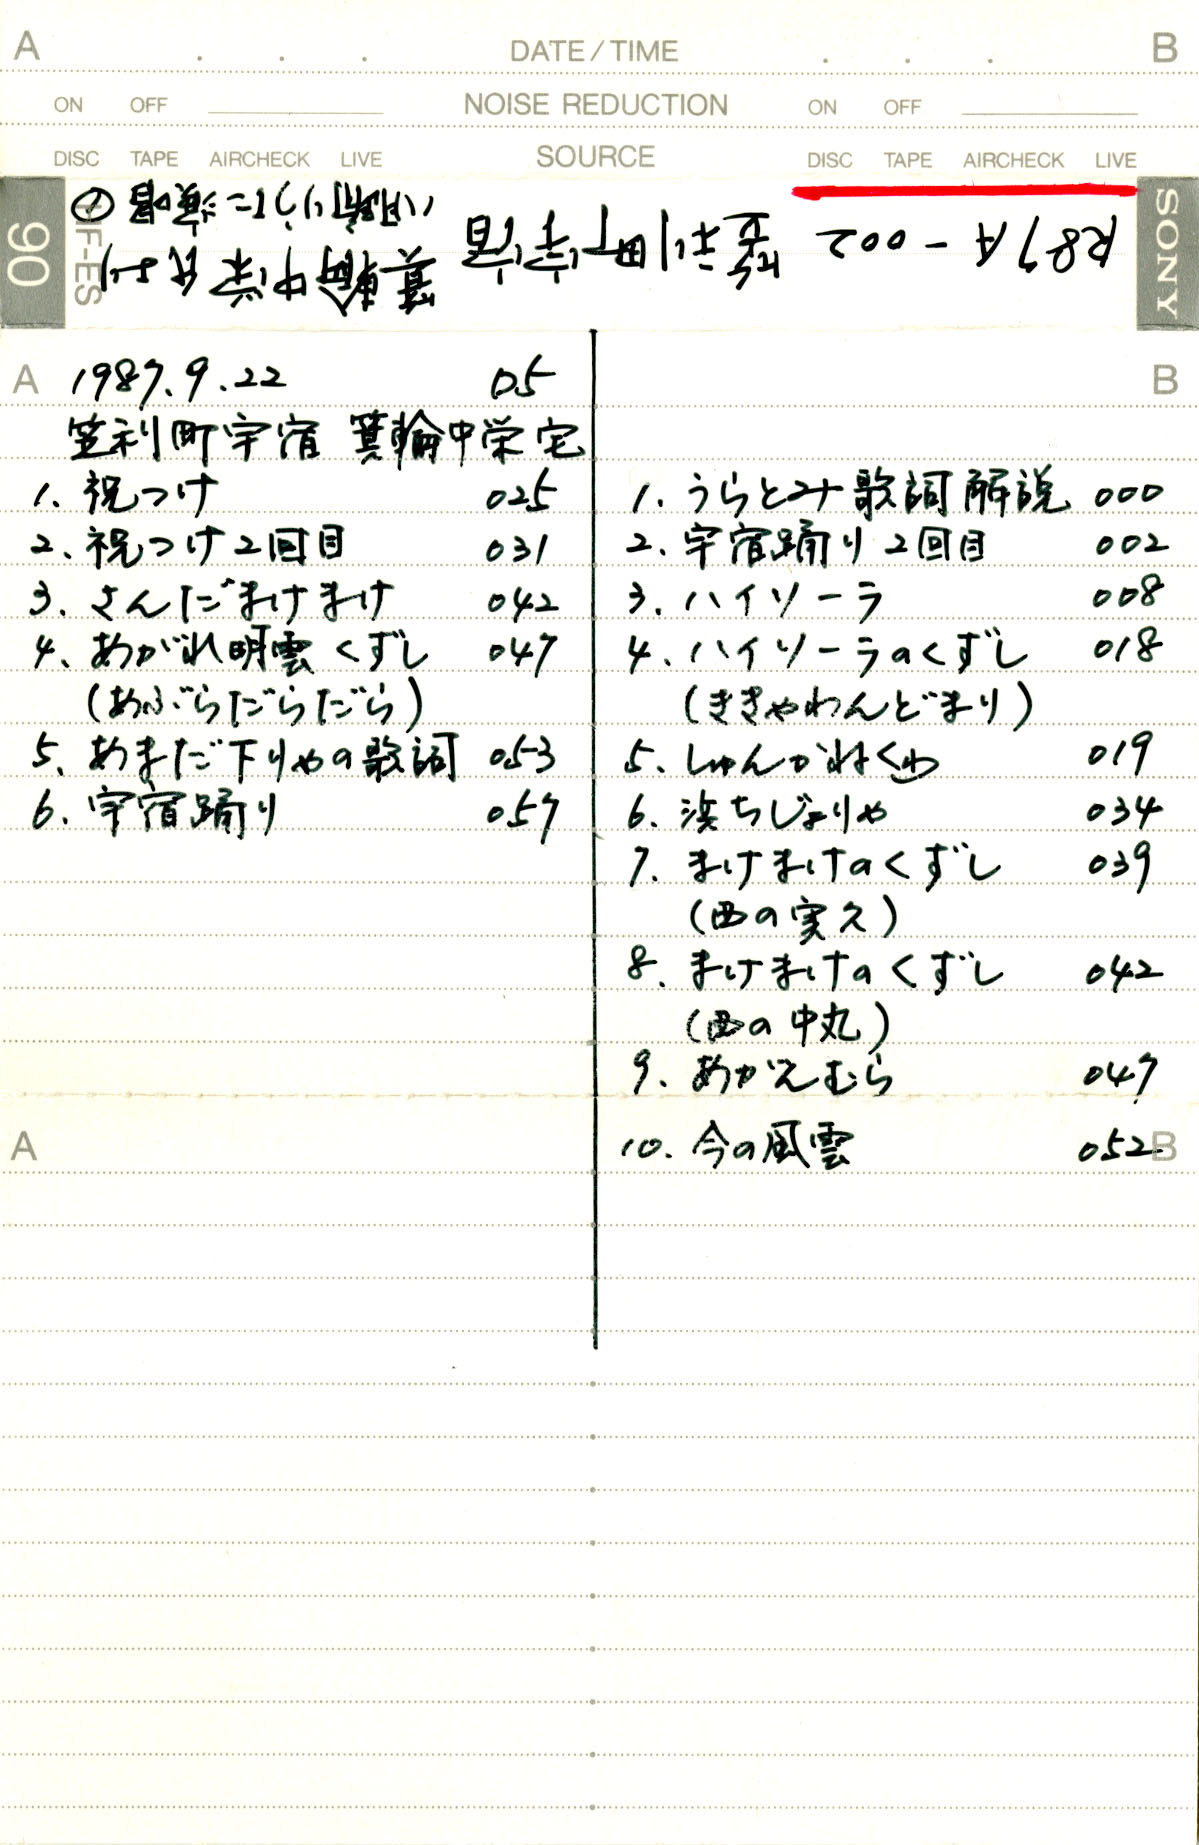 A DATE/TIME B
ON OFF NOISE REDUCTION ON OFF
DISC TAPE AIRCHECK LIVE SOURCE DISC TAPE AIRCHECK LIVE
90 HF-ES SONY
R87A-002 笠利町宇宿
箕輪中栄氏より
八月踊り
A 1987.9.22 05
笠利町宇宿 箕輪中栄宅
1. 祝つけ 025
2. 祝つけ2回目 031
3. さんだまけまけ 042
4. あがれ明雲くずし 047
(あぶらだらだら)
5. あまだ下りやの歌詞 053
6. 宇宿踊り 057
A
B
1. うらとみ歌詞解説 000
2. 宇宿踊り2回目 002
3. ハイソーラ 008
4. ハイソーラのくずし 018
(ききゃわんどまり)
5. しゅんかねくゎ 019
6. 浜ちじょりや 034
7. まけまけのくずし 039
(西の実久)
8. まけまけのくずし 042
(西の中丸)
9. あがえむら 047
10. 今の風雲 052
B